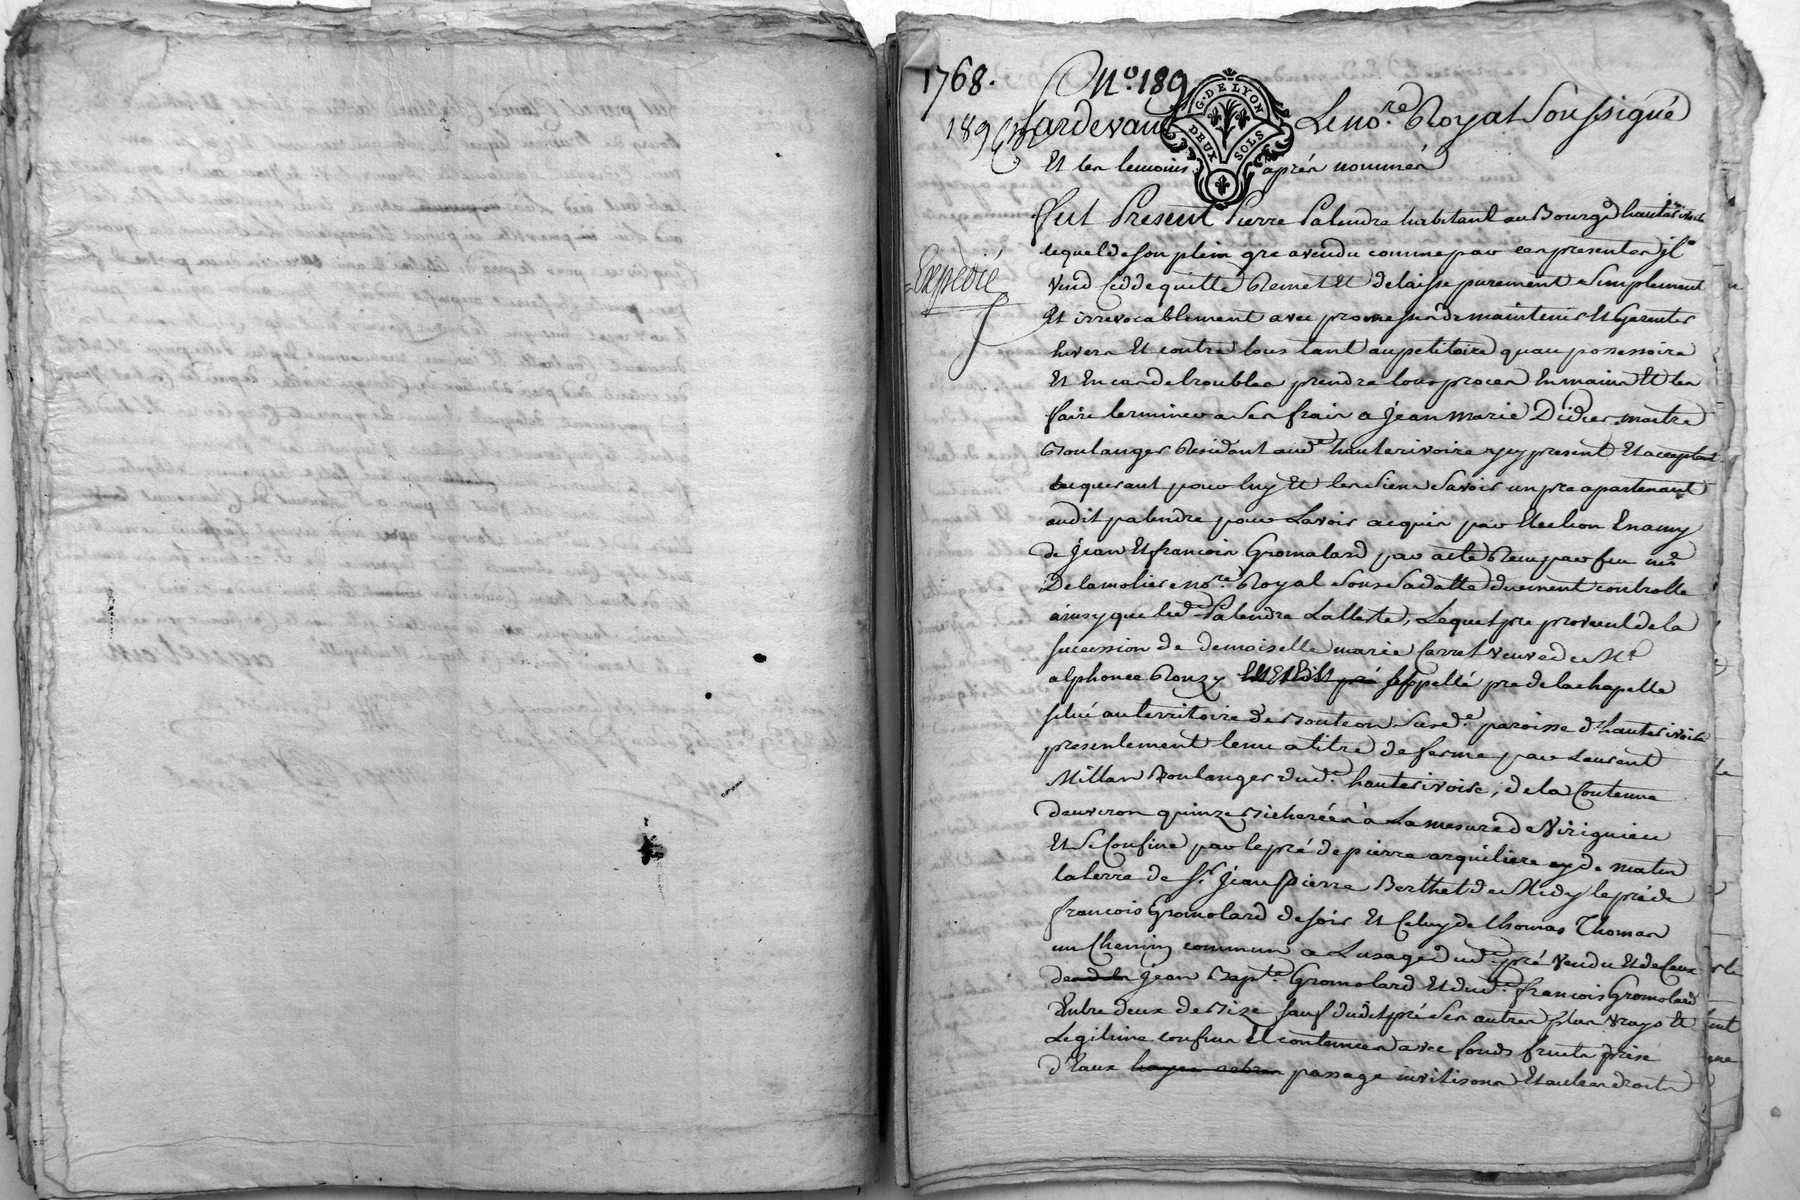 1768.
N.º 189
189
G. DE LYON
DEUX SOLS
Pardevant Le no.re Royal Soussigné
Et les temoins aprés nommés
Expedié
fut Present Pierre Palendre habitant au Bourg d'hauterivoire
lequel de son plein gre a vendu comme par ces presentes il
vend cedde quitte Remet Et delaisse purement simplement
Et irrevocablement avec promesse de maintenir Et Garentir
Envers Et contre tous tant au petitoire qu'au possessoire
Et En cas de troubles prendre tous proces En mains Et les
faire terminer a ses frais a Jean Marie Didier maitre
Boulanger Residant aud. hauterivoire icy present Et acceptant
acquerant pour luy Et les siens Savoir un pre apartenant
audit palendre pour Lavoir acquis par Election Enamy
de Jean Et francois Gromolard par acte Recu par feu me
Delamolier no.re Royal sous sa datte duement controlle
ainsy que led. Palendre Latteste, Lequel pre provient de la
succession de demoiselle marie Carret veuve de Mr
alphonce Ronzy appellé pre de la chapelle
situé au territoire de susd.e paroisse d'hauterivoire
presentement tenu a titre de ferme par Laurent
Millan Boulanger dud. hauterivoire, de la Contenue
denviron quinze Bicherées à La mesure de Viriguieu
Et Se Confine par le pré de pierre arquiliere de matin
la terre de Sr. Jean Pierre Berthet de Midy le pré de
francois Gromolard de soir Et Celuy de thomas Thomas
un Chemin commun a Lusage dud. pré vendu Et de Ceux
de Jean Bapt.e Gromolard Et dud. francois Gromolard
Entre deux de Bize sauf dudit pré Ses autres plus vrays Et
Legitime confins Et contenues avec fonds fruits prise
d'Eaux passage Et autres droits